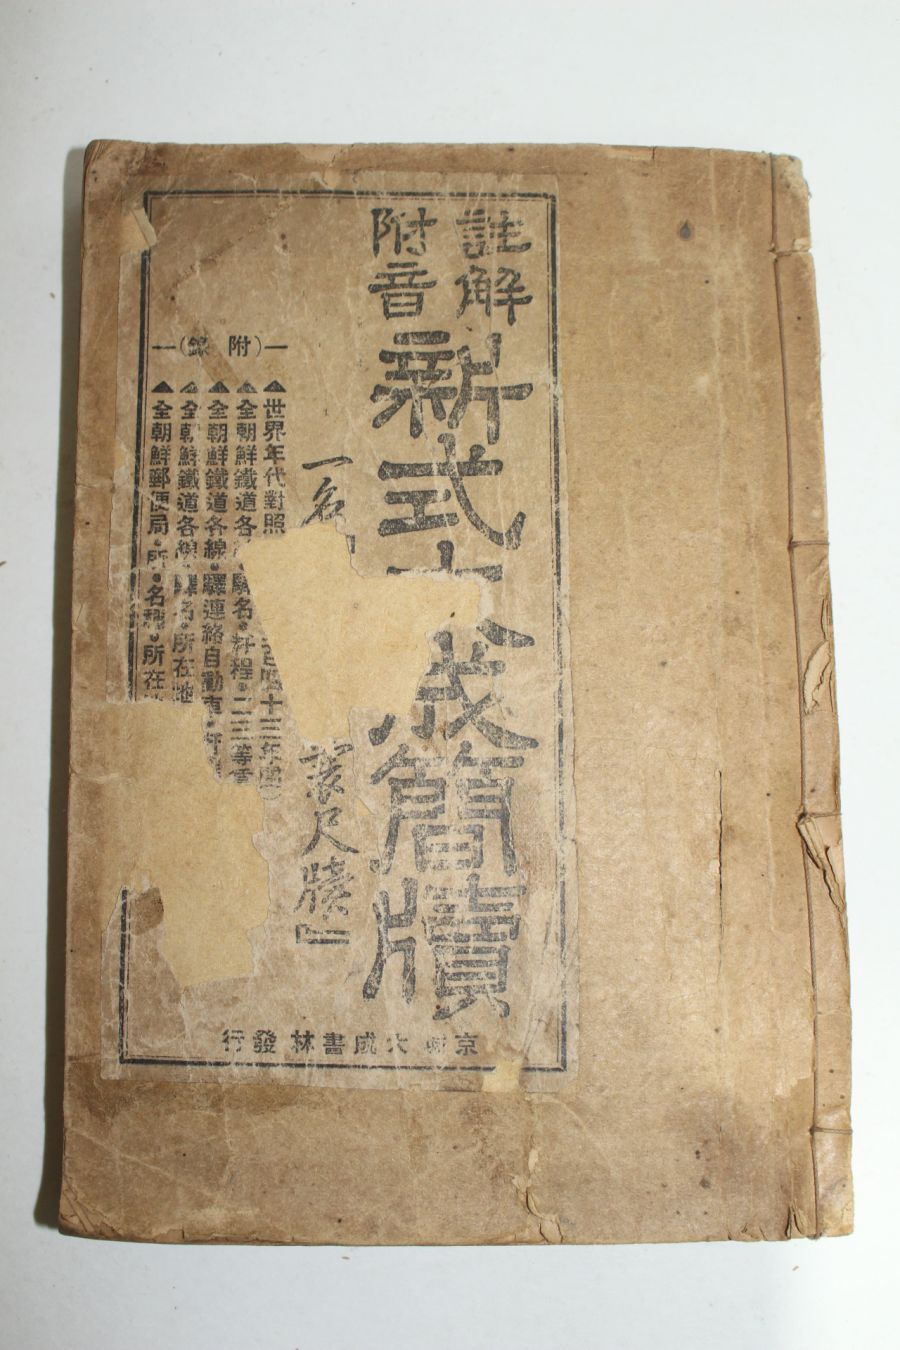 註解
附音
新式大成簡牘
一名
袖珍尺牘』
—(附 錄)—
▲世界年代對照 百四十三年
▲全朝鮮鐵道各 驛名・籵程・二三等
▲全朝鮮鐵道各線・驛連絡自動車・
▲全朝鮮鐵道各線・驛名・所在地
▲全朝鮮郵便局・所・名稱・所在
京城大成書林發行